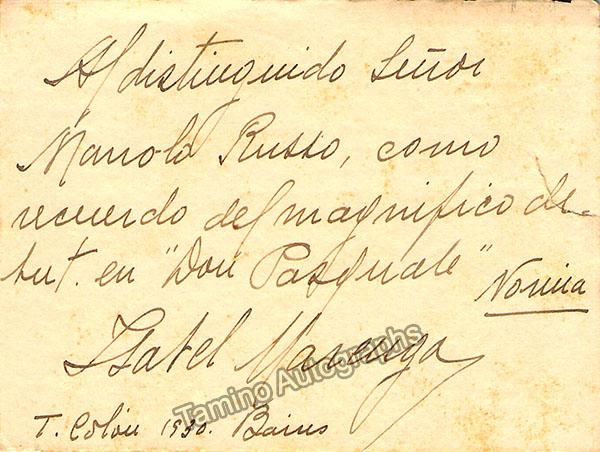 Al distinguido Señor
Manolo Russo, como
recuerdo del magnifico de-
but. en "Don Pasquale"
Norina
Isabel Marengo
T. Colón 1930. Baires
Tamino Autographs